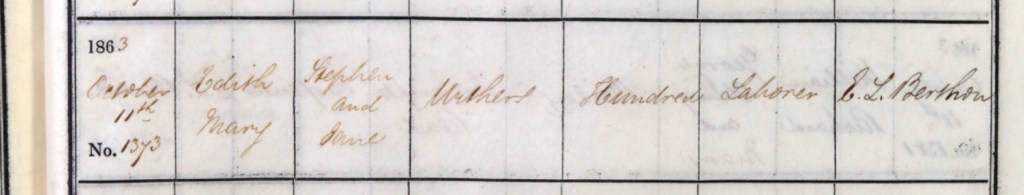 1863
October
11th
No. 1373
Edith
Mary
Stephen
and
Jane
Withers
Hundred
Laborer
E. L. Berthon